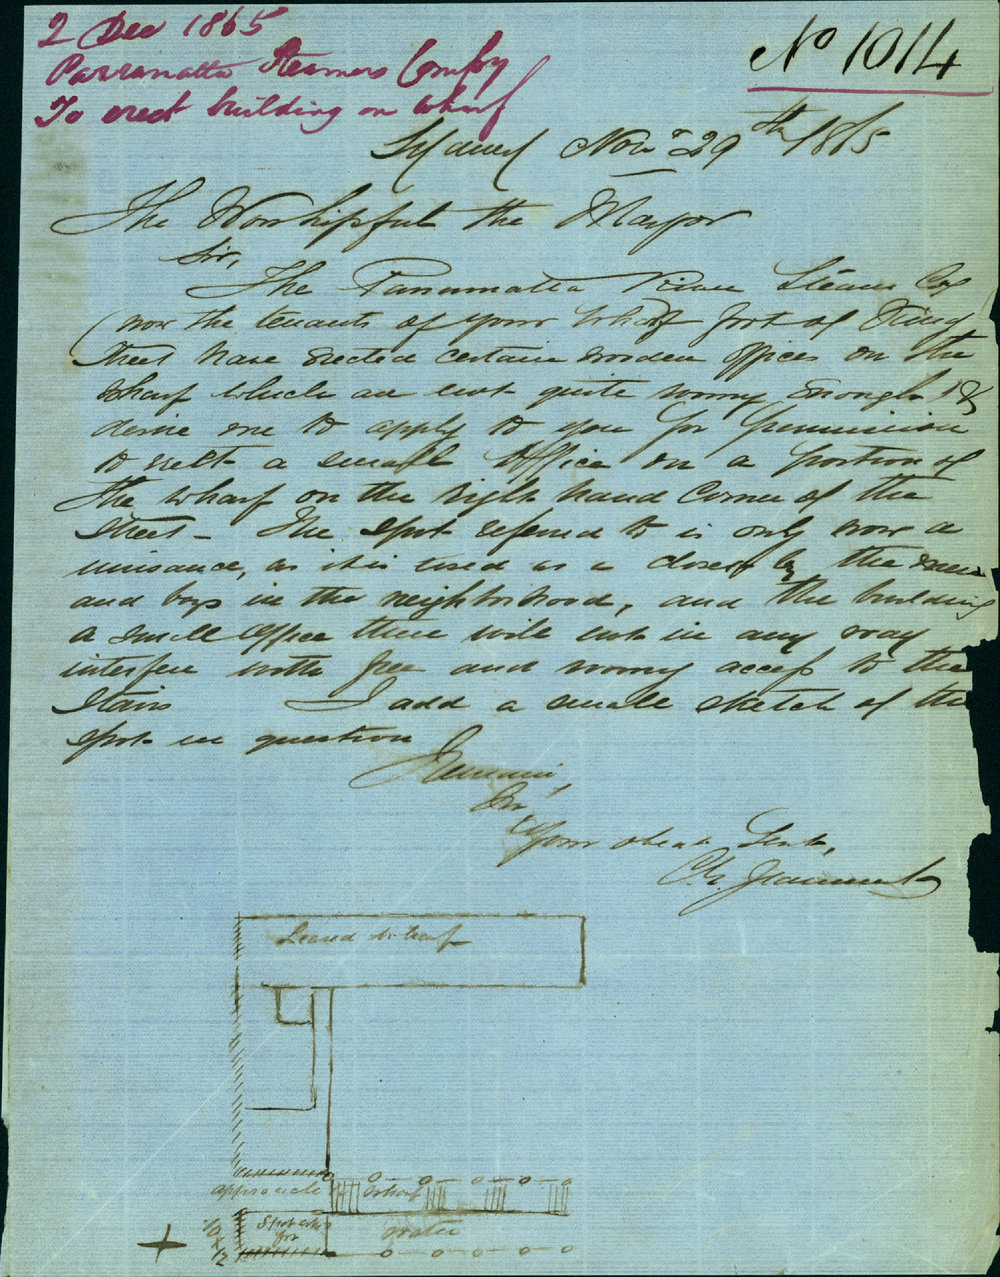 2 Dec 1865
Parramatta Steamers Compy
To erect building on wharf
No 1014
Sydney Novr 29th 1865
The Worshipful the Mayor
Sir,
The Parramatta River Steam Coy
(now the tenants of your Wharf foot of King
Street have erected certain wooden offices on the
wharf which are not quite roomy enough &
desire me to apply to you for permission
to erect a small Office on a portion of
the wharf on the right hand corner of the
street - The spot referred to is only now a
nuisance, as it is used as a closet by the men
and boys in the neighborhood, and the building
a small office there will not in any way
interfere with free and roomy access to the
Stairs I add a small sketch of the
spot in question
I remain,
Sir,
Your obedt Servt,
Leased Wharf
approach
wharf
Spot asked
for
water
10
x
12